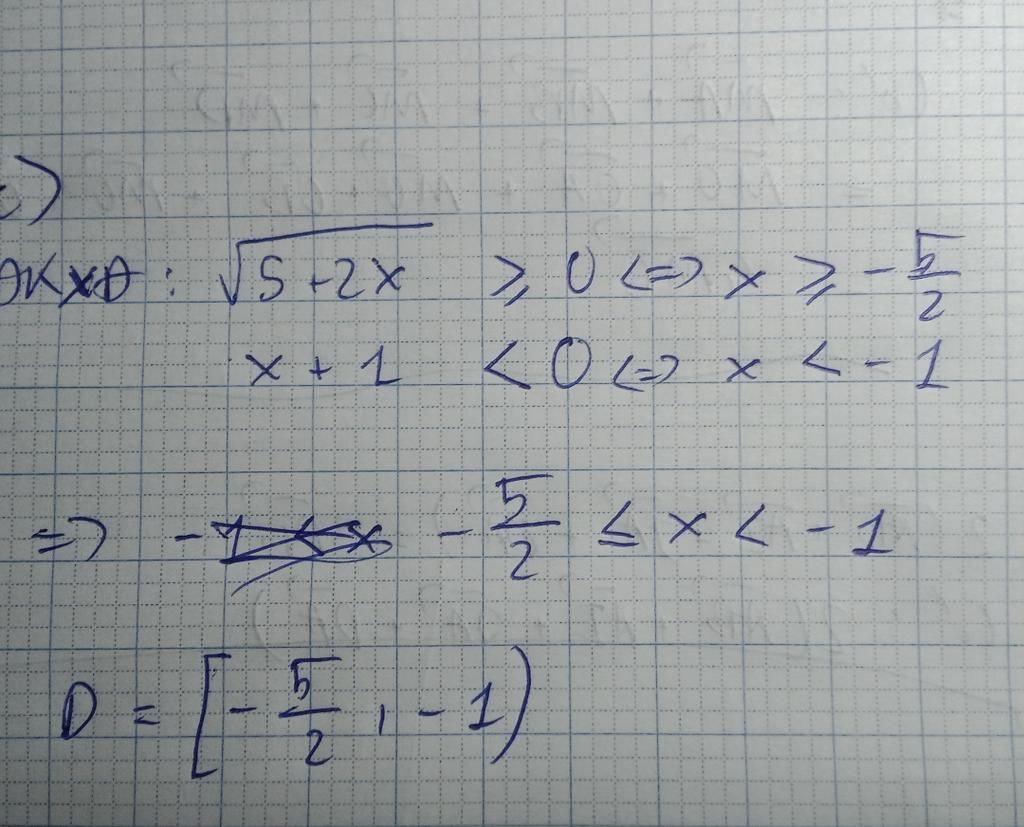 c)
ĐKXĐ: √5+2x ≥ 0 <=> x ≥ -5/2
x + 1 < 0 <=> x < -1
=> - 5/2 ≤ x < -1
D = [-5/2, -1)